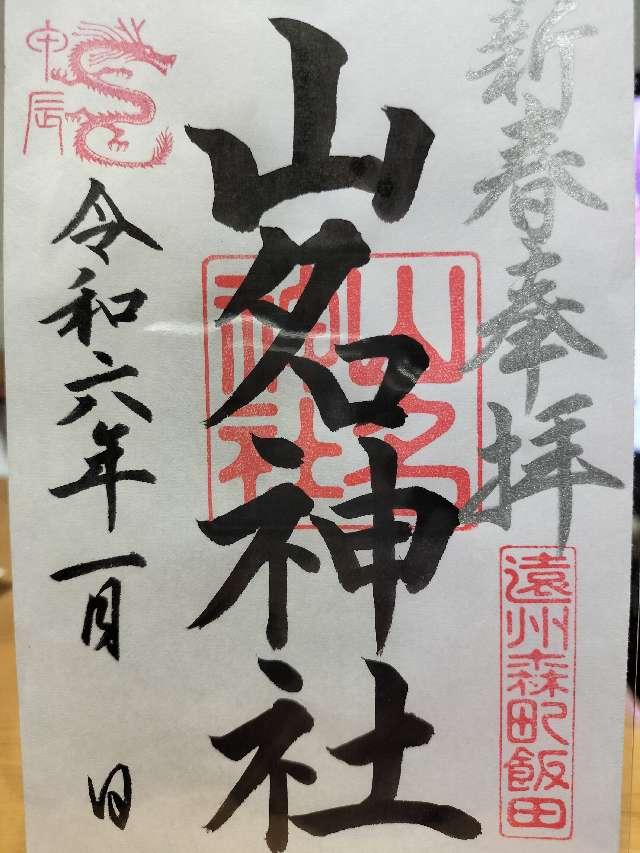 新春奉拝
遠州森町飯田
山名神社
山名
神社
令和六年一月 日
甲辰